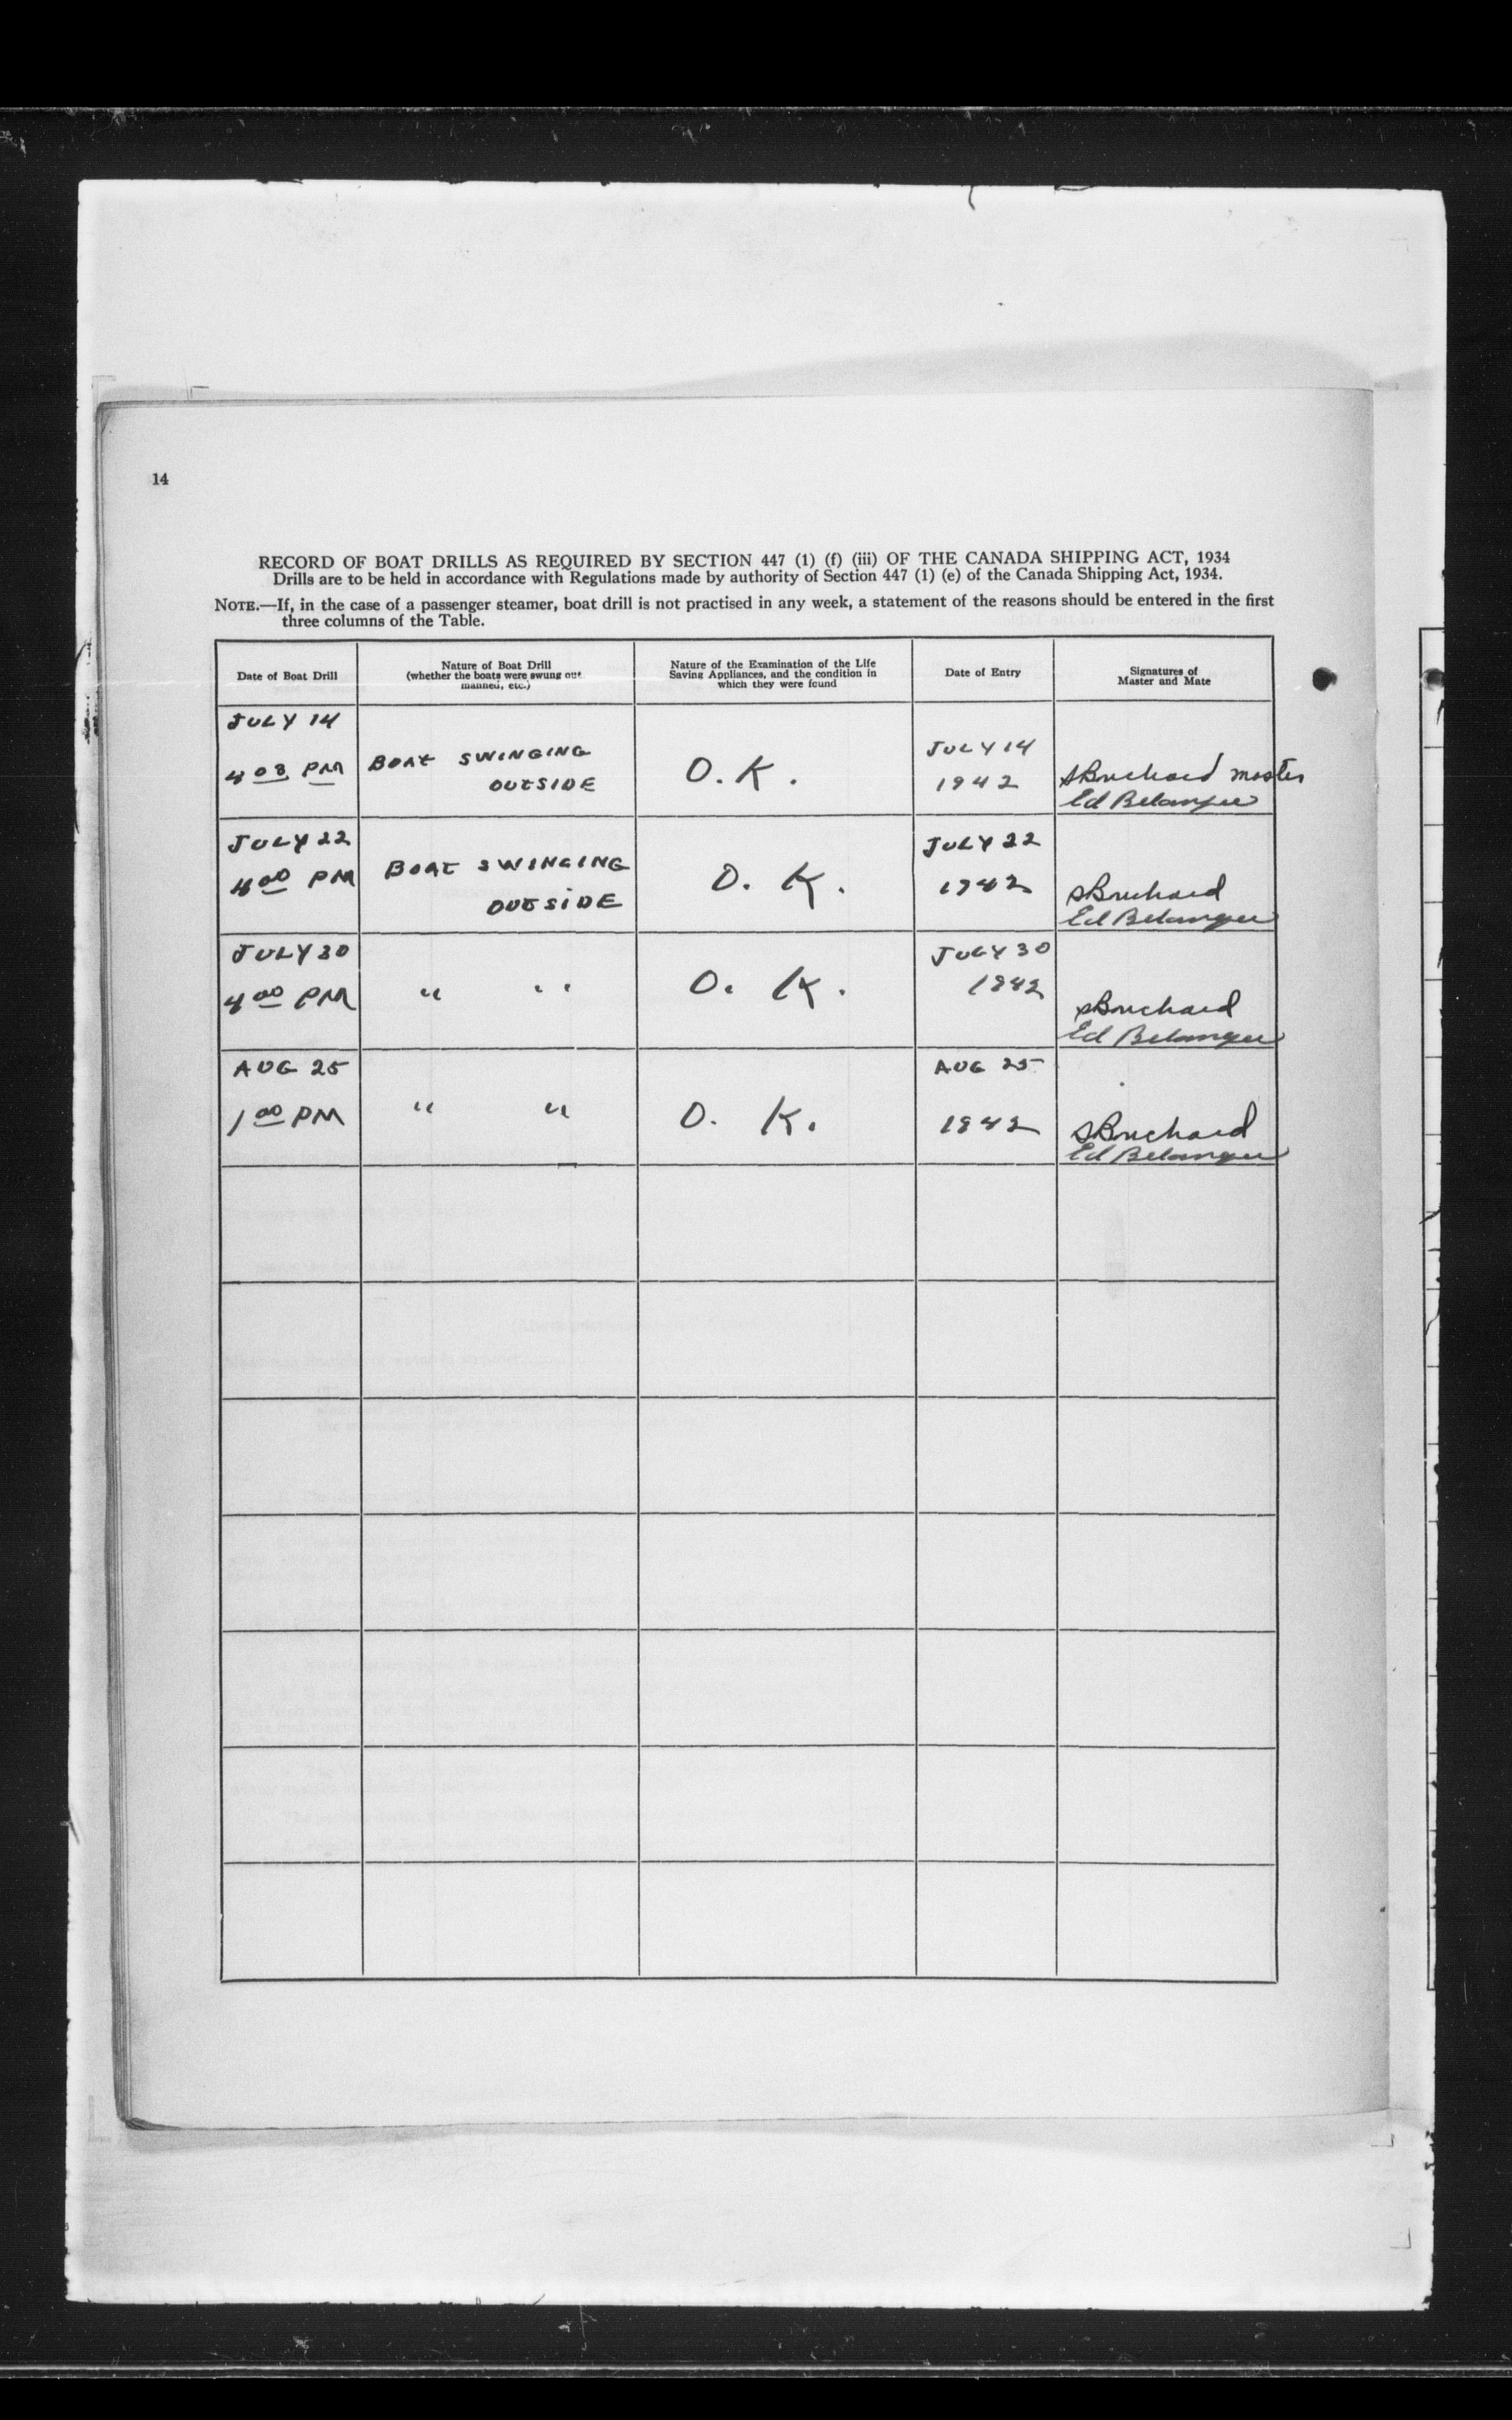 14
RECORD OF BOAT DRILLS AS REQUIRED BY SECTION 447 (1) (f) (iii) OF THE CANADA SHIPPING ACT, 1934
Drills are to be held in accordance with Regulations made by authority of Section 447 (1) (e) of the Canada Shipping Act, 1934.
NOTE.—If, in the case of a passenger steamer, boat drill is not practised in any week, a statement of the reasons should be entered in the first
three columns of the Table.
Date of Boat Drill
Nature of Boat Drill
(whether the boats were swung out
manned, etc.)
Nature of the Examination of the Life
Saving Appliances, and the condition in
which they were found
Date of Entry
Signatures of
Master and Mate
JULY 14
4 03 PM
BOAT SWINGING
OUTSIDE
O.K.
JULY 14
1942
SBouchard master
Ed Belanger
JULY 22
4 00 PM
BOAT SWINGING
OUTSIDE
O. K.
JULY 22
1942
SBouchard
Ed Belanger
JULY 30
4 00 PM
" "
O. K.
JULY 30
1942
SBouchard
Ed Belanger
AUG 25
1 00 PM
" "
O. K.
AUG 25
1942
SBouchard
Ed Belanger